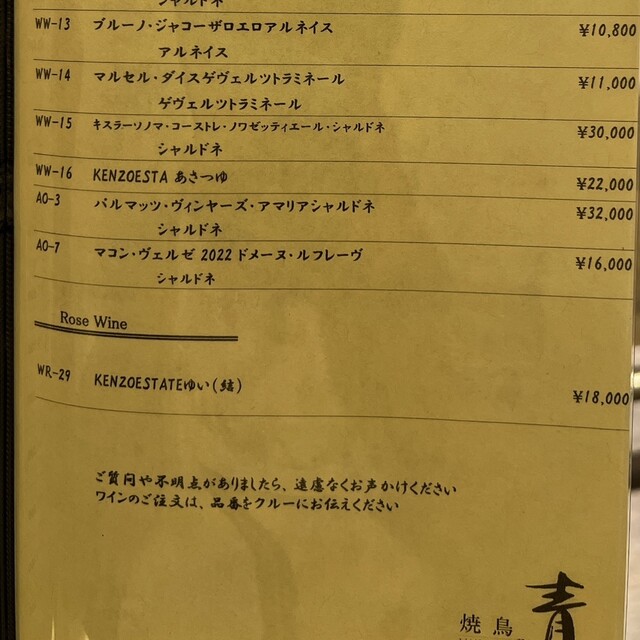 シャルドネ
WW-13 ブルーノ・ジャコーザロエロアルネイス ¥10,800
アルネイス
WW-14 マルセル・ダイスゲヴェルツトラミネール ¥11,000
ゲヴェルツトラミネール
WW-15 キスラーソノマ・コーストレ・ノワゼッティエール・シャルドネ ¥30,000
シャルドネ
WW-16 KENZOESTA あさつゆ ¥22,000
AO-3 パルマッツ・ヴィンヤーズ・アマリアシャルドネ ¥32,000
シャルドネ
AO-7 マコン・ヴェルゼ 2022 ドメーヌ・ルフレーヴ ¥16,000
シャルドネ
Rose Wine
WR-29 KENZOESTATEゆい(結) ¥18,000
ご質問や不明点がありましたら、遠慮なくお声かけください
ワインのご注文は、品番をクルーにお伝えください
焼鳥 青